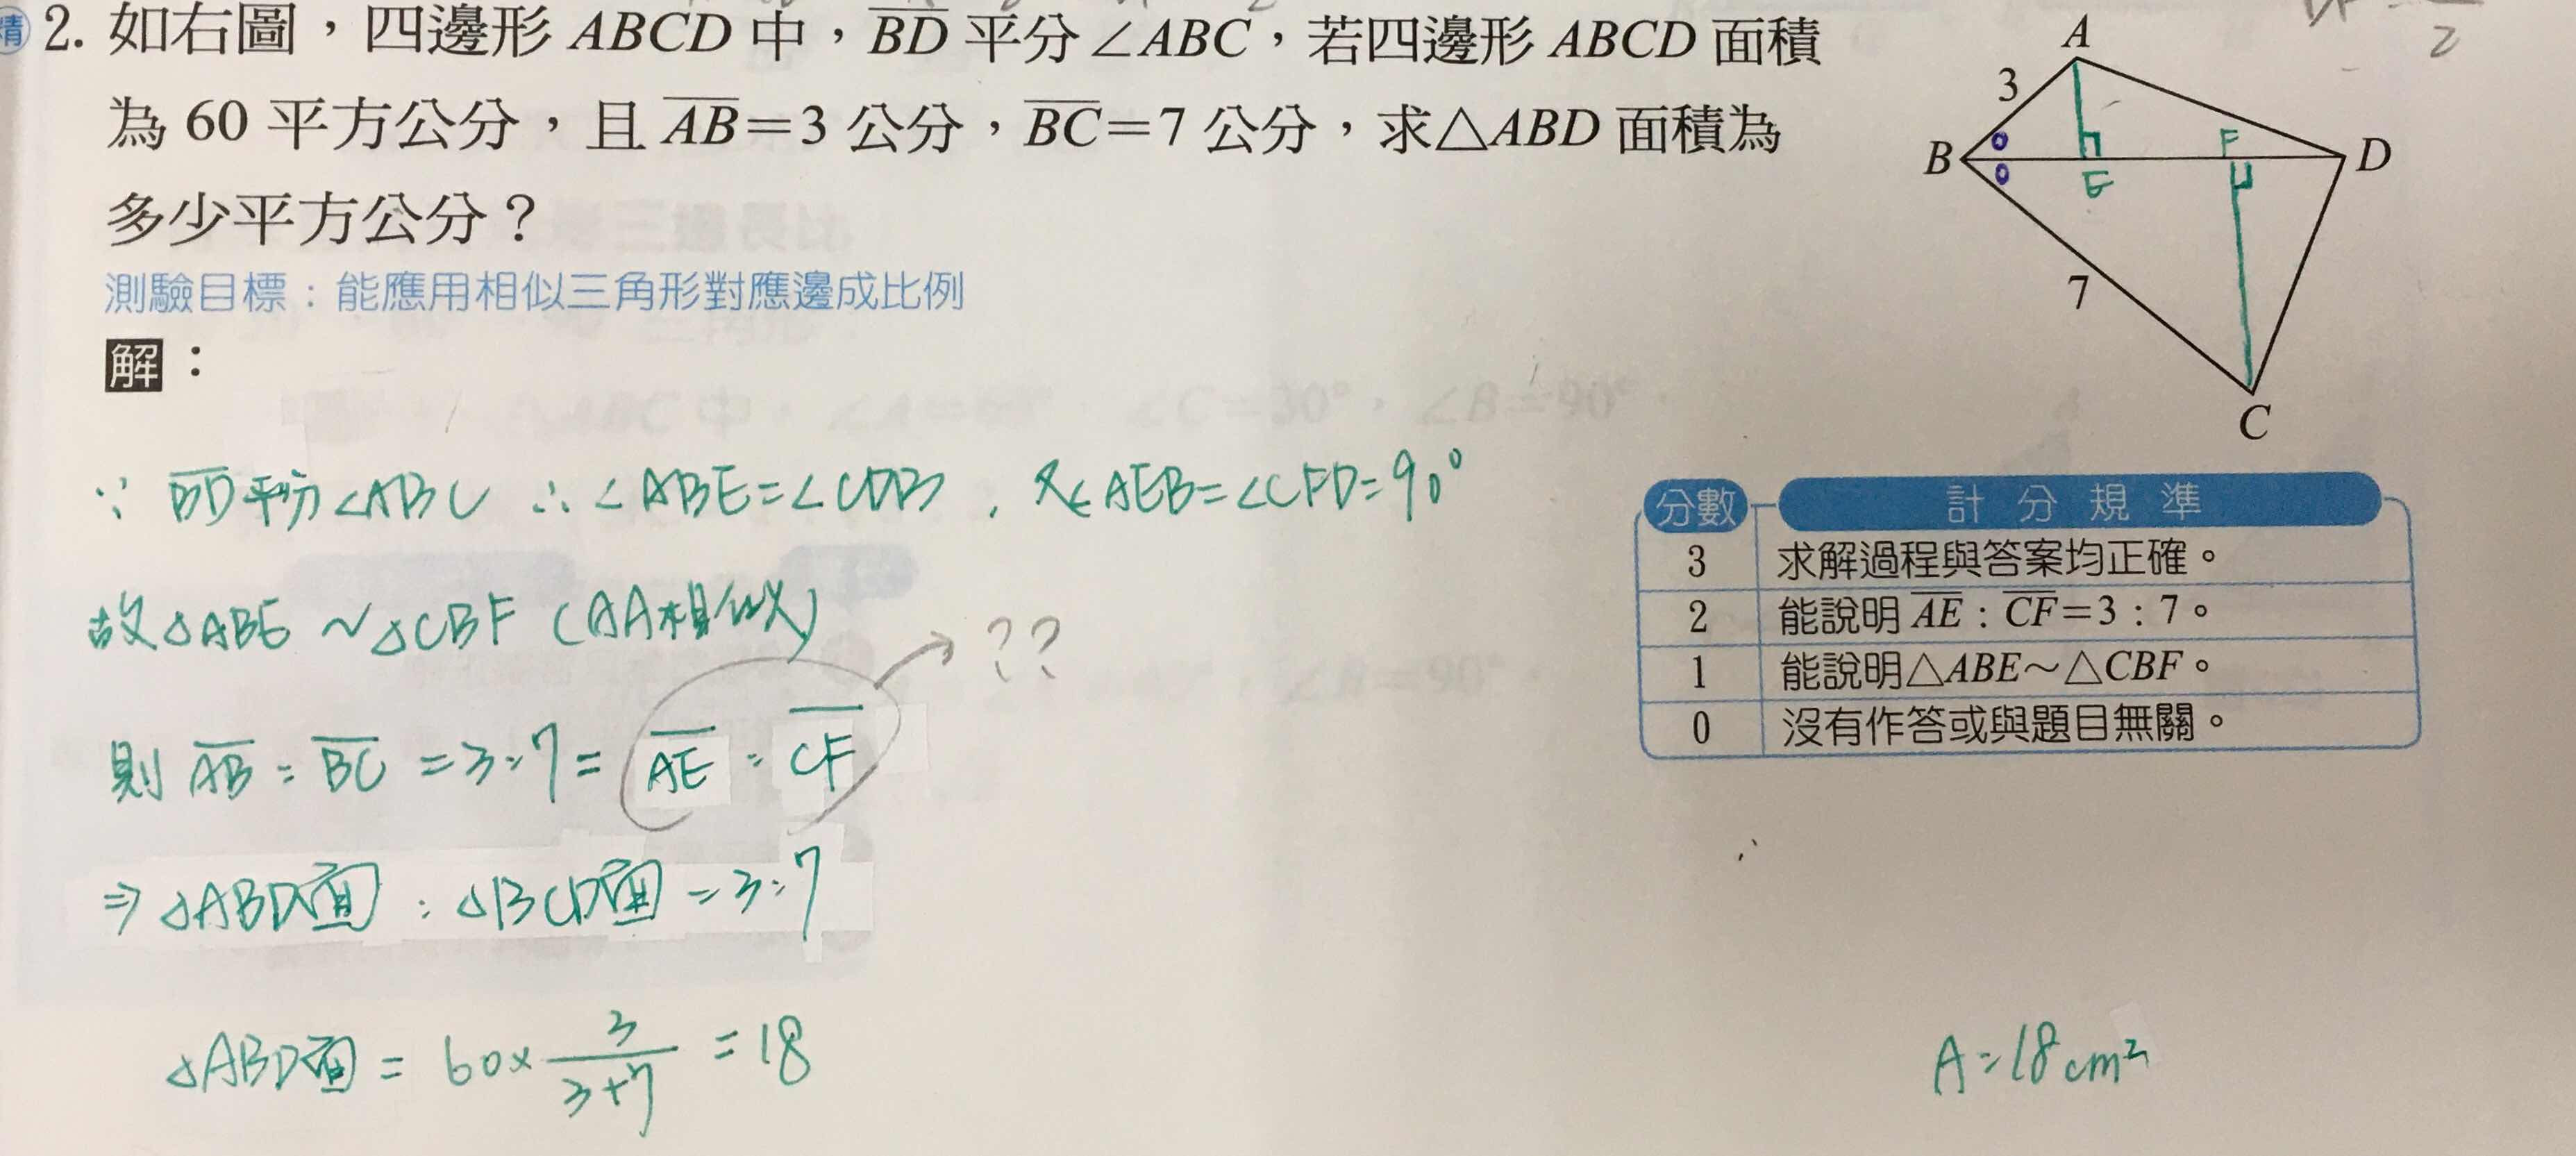 精 2. 如右圖，四邊形 ABCD 中，BD 平分∠ABC，若四邊形 ABCD 面積
為 60 平方公分，且 AB=3 公分，BC=7 公分，求△ABD 面積為
多少平方公分？
測驗目標：能應用相似三角形對應邊成比例
解：
A
3
B
D
E
F
7
C
∵ BD平分∠ABC ∴ ∠ABE=∠CDB , 又∠AEB=∠CFD=90°
故△ABE ~△CBF (AA相似)
??
則 AB : BC =3:7= AE : CF
⇒ △ABD面 : △BCD面 =3:7
△ABD面 = 60× 3/(3+7) =18
A=18cm²
分數 計分規準
3 求解過程與答案均正確。
2 能說明 AE：CF=3：7。
1 能說明△ABE～△CBF。
0 沒有作答或與題目無關。